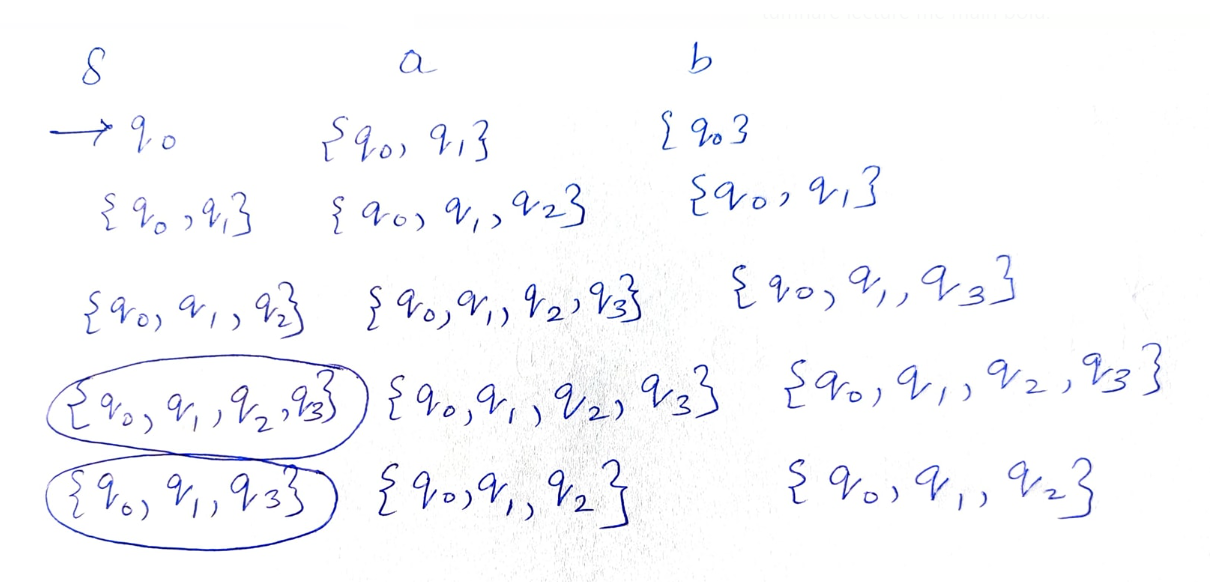 δ a b
→ q₀ {q₀, q₁} {q₀}
{q₀, q₁} {q₀, q₁, q₂} {q₀, q₁}
{q₀, q₁, q₂} {q₀, q₁, q₂, q₃} {q₀, q₁, q₃}
{q₀, q₁, q₂, q₃} {q₀, q₁, q₂, q₃} {q₀, q₁, q₂, q₃}
{q₀, q₁, q₃} {q₀, q₁, q₂} {q₀, q₁, q₂}